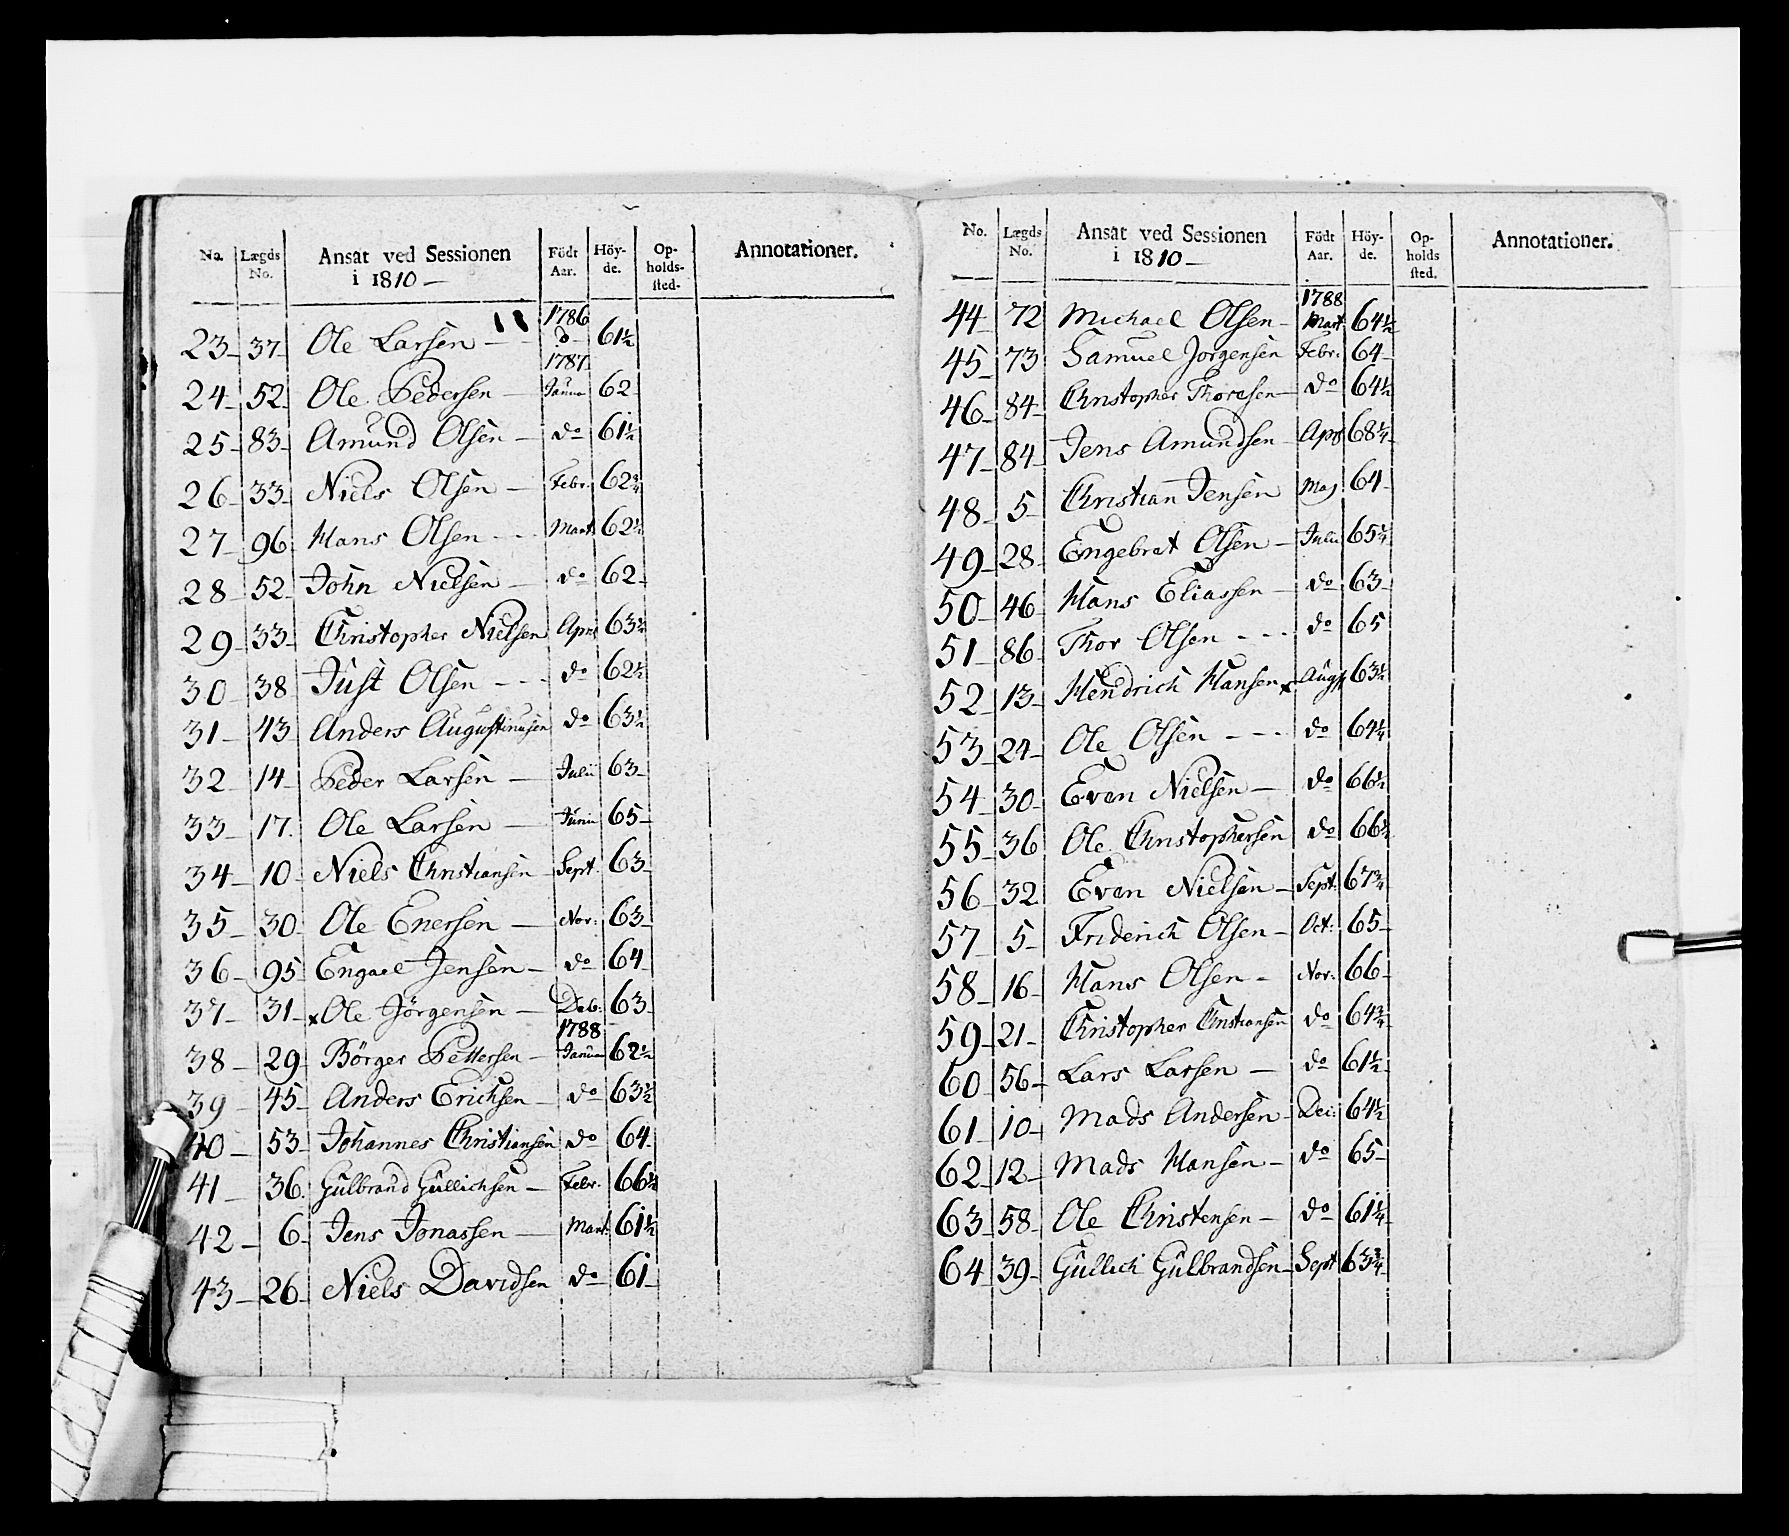 No. Lægds No. Ansat ved Sessionen i 1810 — Födt Aar. Höy-de. Op-holds-sted. Annotationer.
11
1786
23 37 Ole Larsen — do 61½
1787
24 52 Ole Pedersen — Janua 62
25 83 Amund Olsen — do 61½
26 33 Niels Olsen — Febr. 62¾
27 96 Hans Olsen - - - Mart. 62½
28 52 John Nielsen — do 62
29 33 Christopher Nielsen April 63½
30 38 Just Olsen - - - do 62½
31 43 Anders Augustinusen do 63½
32 14 Peder Larsen — Julii 63
33 17. Ole Larsen — Junii 65
34 10 Niels Christiansen — Sept. 63
35 30 Ole Enersen — Nov: 63
36 95 Engael Jensen — do 64
37 31 x Ole Jörgensen — Deb: 63
1788
38 29 Börger Pettersen — Janua 62½
39 45 Anders Erichsen — do 63½
40 53 Johannes Christiansen do 64
41 36. Gulbrand Gullichsen — Febr. 66½
42 6 Jens Jonassen — Mart. 61½
43 26 Niels Davidsen do 61
No. Lægds No. Ansat ved Sessionen i 1810 — Födt Aar. Höy-de. Op-holds sted. Annotationer.
1788
44 72 Michael Olsen — Mart 64½
45 73 Samuel Jorgensen Febr: 64
46 84 Christopher Thoresen — do 64½
47 84 Jens Amundsen — Apr 68¼
48 5 Christian Jensen Maj 64
49 28 Engebret Olsen — Julii 65¼
50 46 Hans Eliassen — do 63
51 86 Thor Olsen - - - do 65
52 13 Hendrich Hansen x Augt 63½
53 24 Ole Olsen - - - do 64¼
54 30 Even Nielsen — do 66½
55 36 Ole Christophersen do 66½
56 32 Even Nielsen — Sept: 67¾
57 5 Friderich Olsen — Oct: 65
58 16 Hans Olsen — Nov: 66
59 21 Christopher Christiansen do 64¾
60 56 Lars Larsen — do 61½
61 10 Mads Andersen — Dec: 64½
62 12 Mads Hansen — do 65
63 58 Ole Christensen — do 61¼
64 39 Gullich Gulbrandsen — Sept 63¾